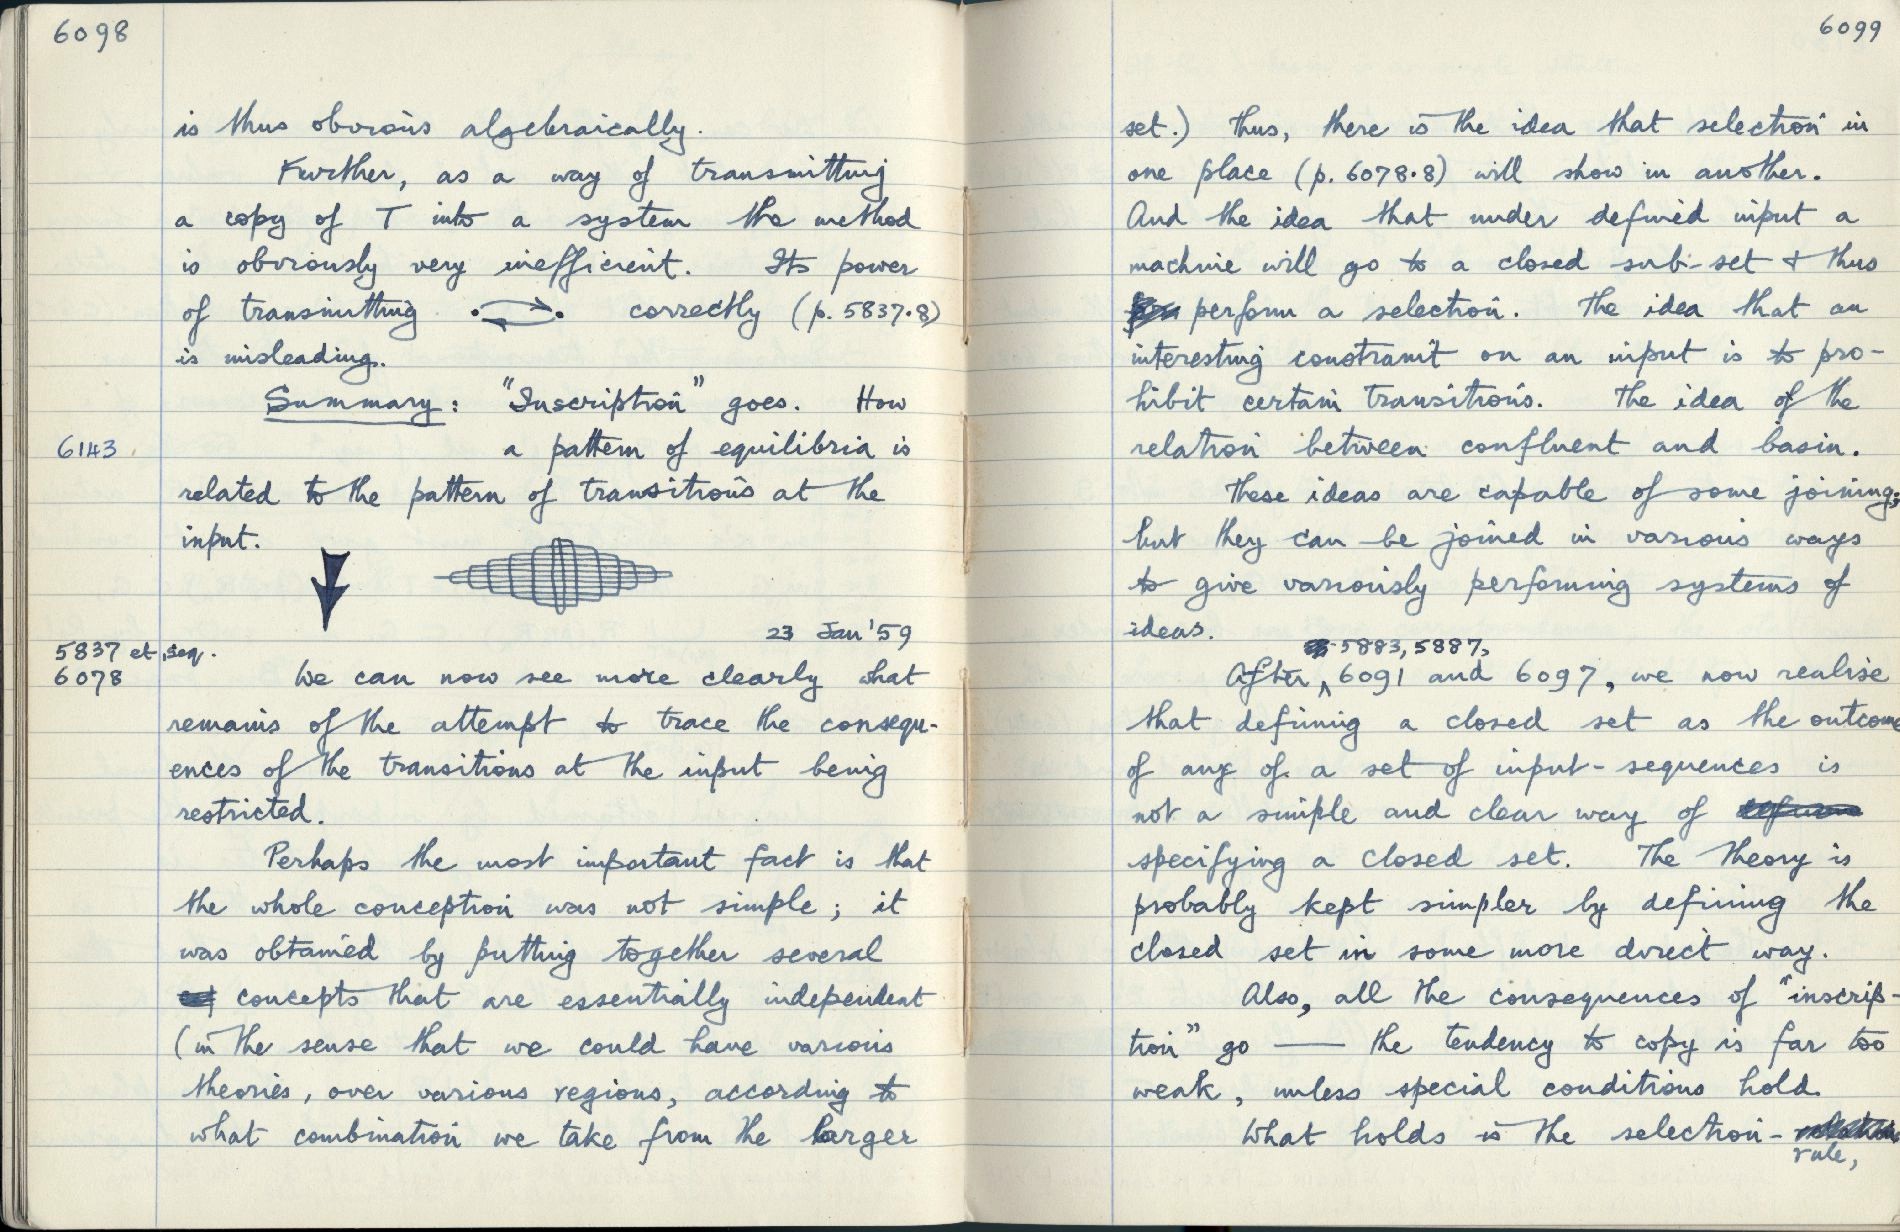 6098
is thus obvious algebraically.
Further, as a way of transmitting
a copy of T into a system the method
is obviously very inefficient. Its power
of transmitting correctly (p. 5837.8)
is misleading.
Summary: "Inscription" goes. How
6143
a pattern of equilibria is
related to the pattern of transitions at the
input.
23 Jan '59
5837 et seq.
6078
We can now see more clearly what
remains of the attempt to trace the consequ-
ences of the transitions at the input being
restricted.
Perhaps the most important fact is that
the whole conception was not simple; it
was obtained by putting together several
concepts that are essentially independent
(in the sense that we could have various
theories, over various regions, according to
what combination we take from the larger
6099
set.) Thus, there is the idea that selection in
one place (p. 6078.8) will show in another.
And the idea that under defined input a
machine will go to a closed sub-set & thus
perform a selection. The idea that an
interesting constraint on an input is to pro-
hibit certain transitions. The idea of the
relation between confluent and basin.
These ideas are capable of some joining;
but they can be joined in various ways
to give variously performing systems of
ideas.
5883, 5887,
After 6091 and 6097, we now realise
that defining a closed set as the outcome
of any of a set of input-sequences is
not a simple and clear way of
specifying a closed set. The theory is
probably kept simpler by defining the
closed set in some more direct way.
Also, all the consequences of "inscrip-
tion" go — the tendency to copy is far too
weak, unless special conditions hold.
What holds is the selection-
rule,